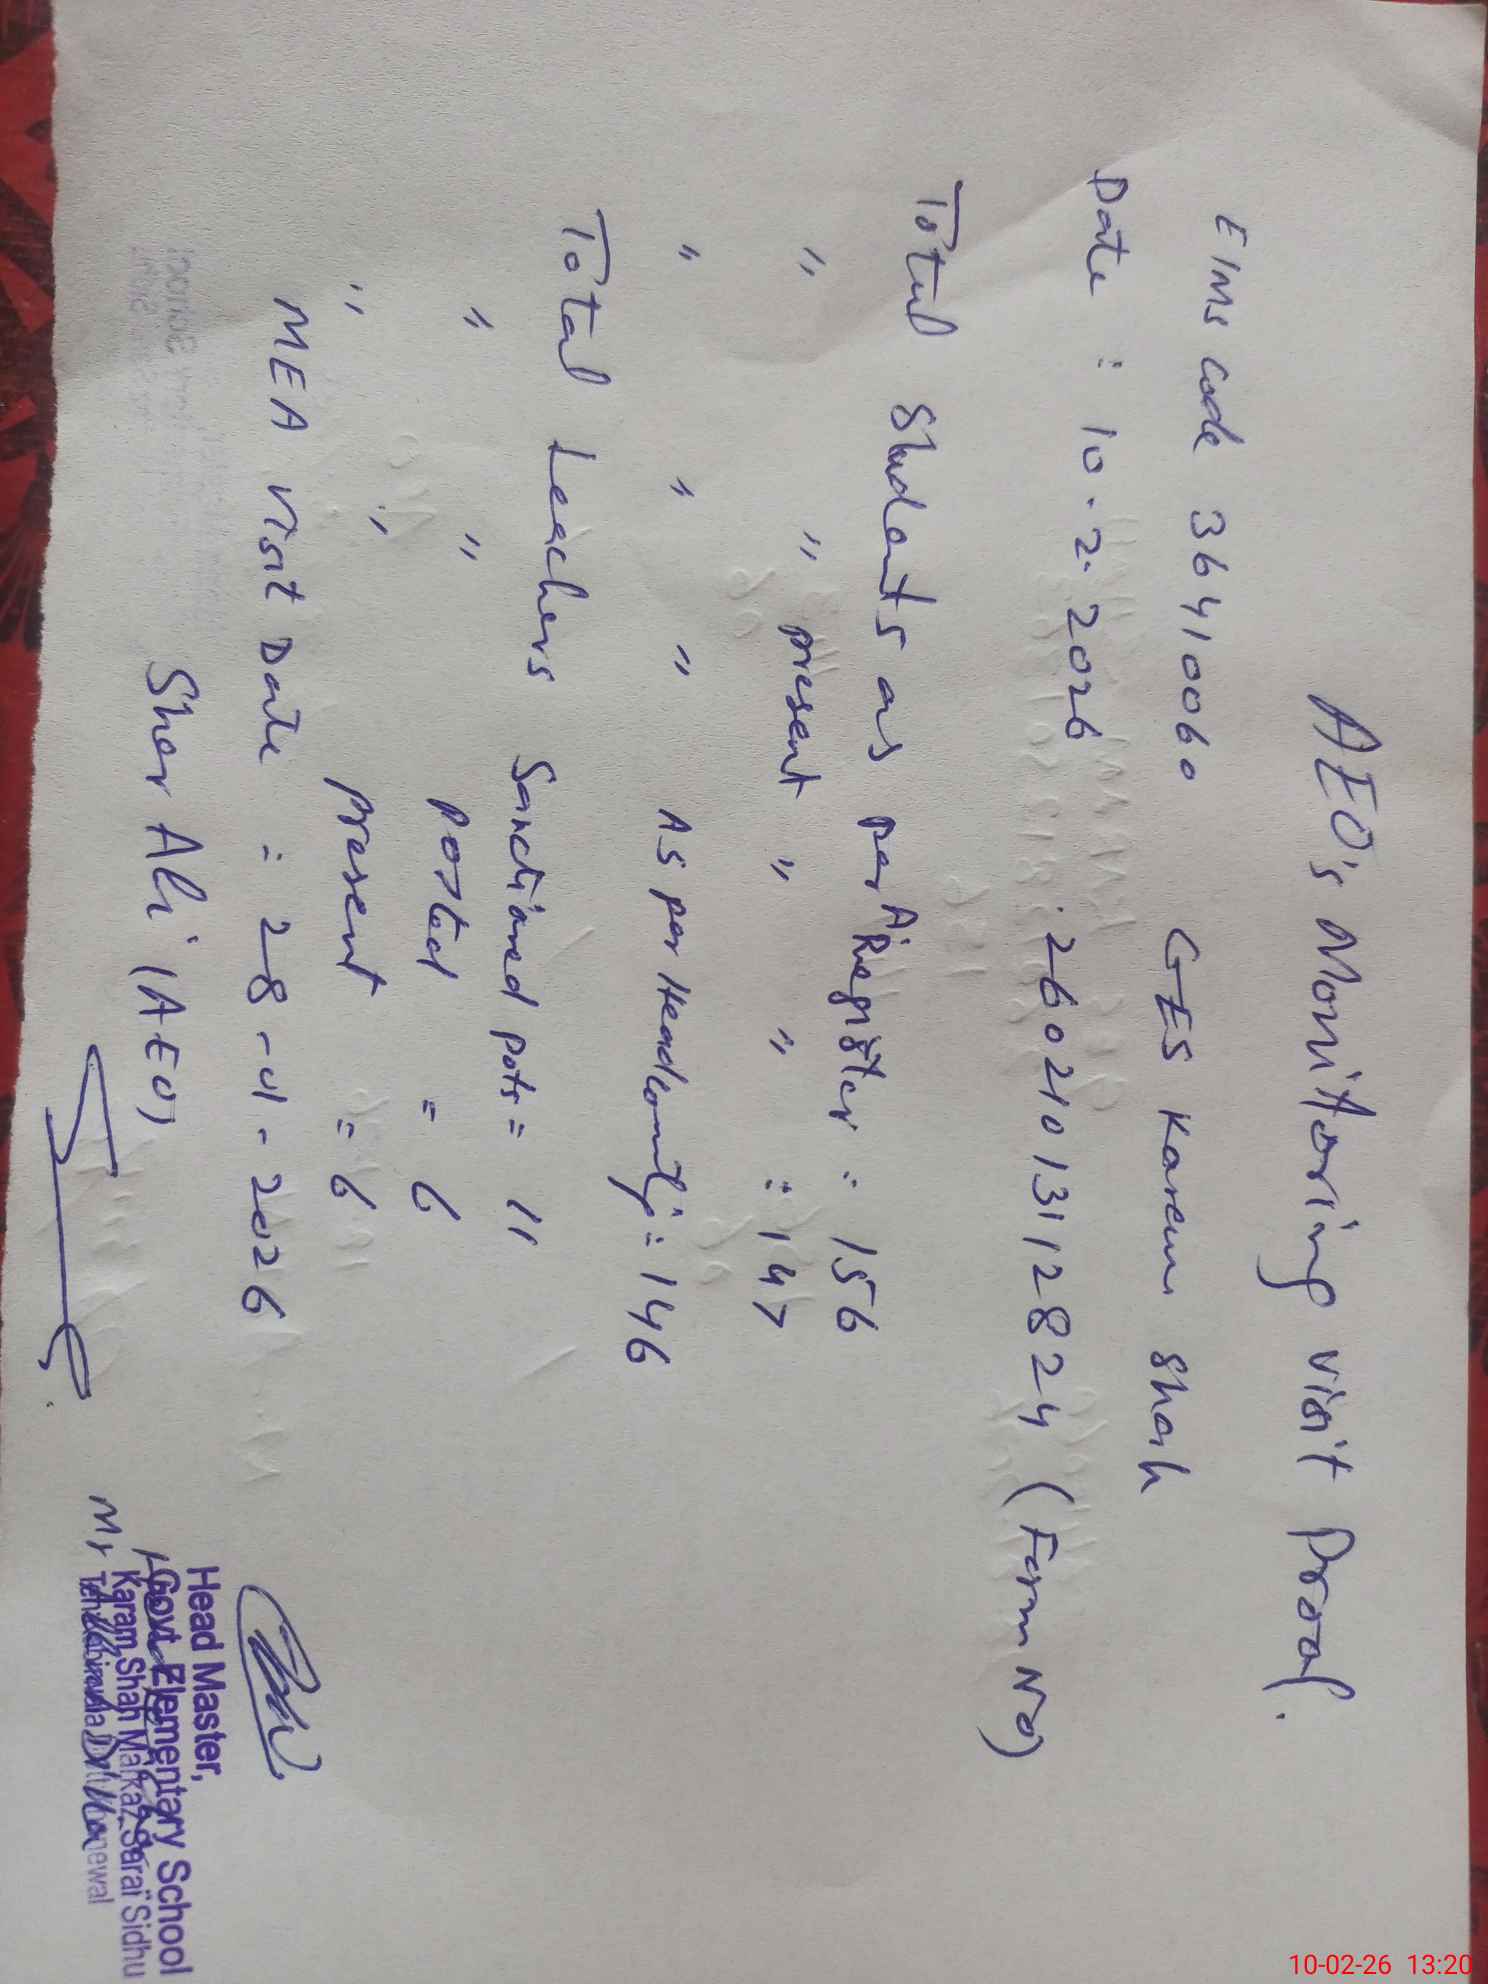 AEO's Monitoring visit Proof.
EIMS code 36410060 GES Karam Shah
Date : 10.2.2026 . 2602101312824 (Form No)
Total Students as per A. Register : 156
" " present " " : 147
" " " As per Headcounting = 146
Total Teachers Sanctioned pots = 11
" " posted = 6
" " present = 6
MEA visit Date : 28-01-2026
Sher Ali (AEO)
Mr
Head Master,
Govt. Elementary School
Karam Shah Markaz Sarai Sidhu
10-02-26 13:20